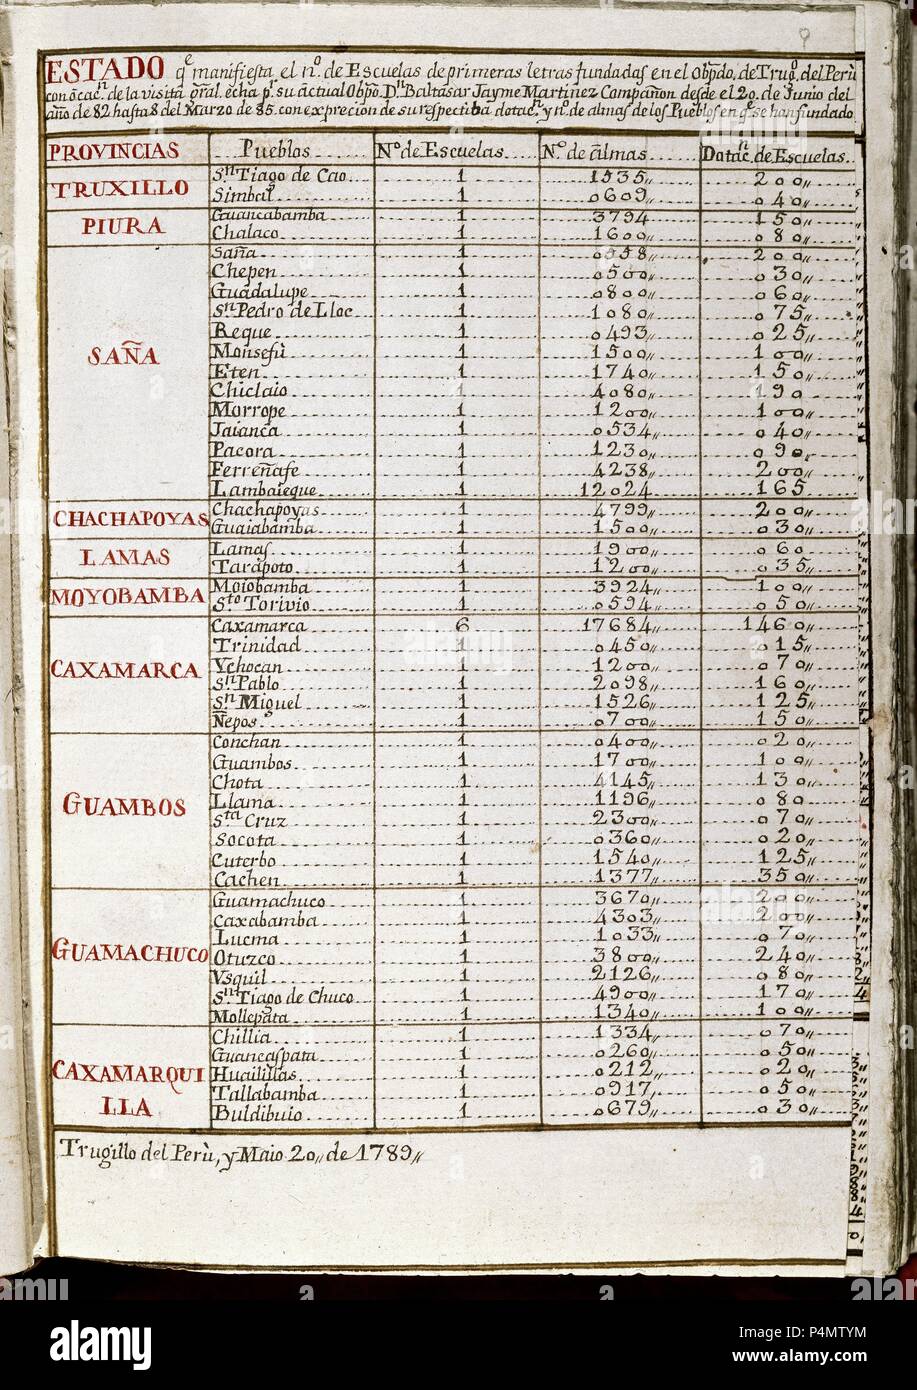 ESTADO qe manifiesta el no. de Escuelas de primeras letras fundadas en el Obpdo. de Trugo. del Perù
con ôcacn. de la visita gral. echa pr. su actual Obpo. Dn. Baltasar Jayme Martinez Compañon desde el 20. de Junio del
año de 82 hasta 8 del Marzo de 85. con exprecion de su respectiba dotacn. y no. de almas de los Pueblos en qe. se han fundado
PROVINCIAS Pueblos No de Escuelas No. de almas Dotacn. de Escuelas
TRUXILLO Sn Tiago de Cao 1 1535,, 200,,
Simbal 1 0609,, 040,,
PIURA Guancabamba 1 3794 150,,
Chalaco 1 1600,, 080,,
SAÑA Saña 1 0558,, 200,,
Chepen 1 0500,, 030,,
Guadalupe 1 0800,, 060,,
Sn Pedro de Lloc 1 1080,, 075,,
Reque 1 0493,, 025,,
Monsefù 1 1500,, 100,,
Eten 1 1740,, 150,,
Chiclaio 1 4080,, 190
Morrope 1 1200,, 100,,
Jaianca 1 0534,, 040,,
Pacora 1 1230,, 090,,
Ferreñafe 1 4238,, 200,,
Lambaieque 1 12024 165
CHACHAPOYAS Chachapoyas 1 4799,, 200,,
Guaiabamba 1 1500,, 030,,
LAMAS Lamas 1 1900,, 060
Tarapoto 1 1200,, 035,,
MOYOBAMBA Moiobamba 1 3924 100,,
Sto Torivio 1 0594,, 050,,
CAXAMARCA Caxamarca 6 17684,, 1460,,
Trinidad 1 0450,, 015,,
Ychocan 1 1200,, 070,,
Sn Pablo 1 2098,, 160,,
Sn Miguel 1 1526,, 125,,
Ñepos 1 0700,, 150,,
GUAMBOS Conchan 1 0400,, 020,,
Guambos 1 1700,, 100,,
Chota 1 4145,, 130,,
Llama 1 1196,, 080
Sta Cruz 1 2300,, 070,,
Socota 1 0360,, 020,,
Cuterbo 1 1540,, 125,,
Cachen 1 1377,, 350,,
GUAMACHUCO Guamachuco 1 3670,, 200,,
Caxabamba 1 4303,, 200,,
Lucma 1 1033,, 070,,
Otuzco 1 3800,, 240,,
Vsquil 1 2126,, 080,,
Sn Tiago de Chuco 1 4900,, 170,,
Mollepata 1 1340,, 100,,
CAXAMARQUI Chillia 1 1334,, 070,,
LLA Guancaspata 1 0260,, 050,,
Huailillas 1 0212,, 020,,
Tallabamba 1 0917, 050,,
Buldibuio 1 0679,, 030,,
Trugillo del Perù, y Maio 20,, de 1789,,
alamy
Image ID: P4MTYM
www.alamy.com